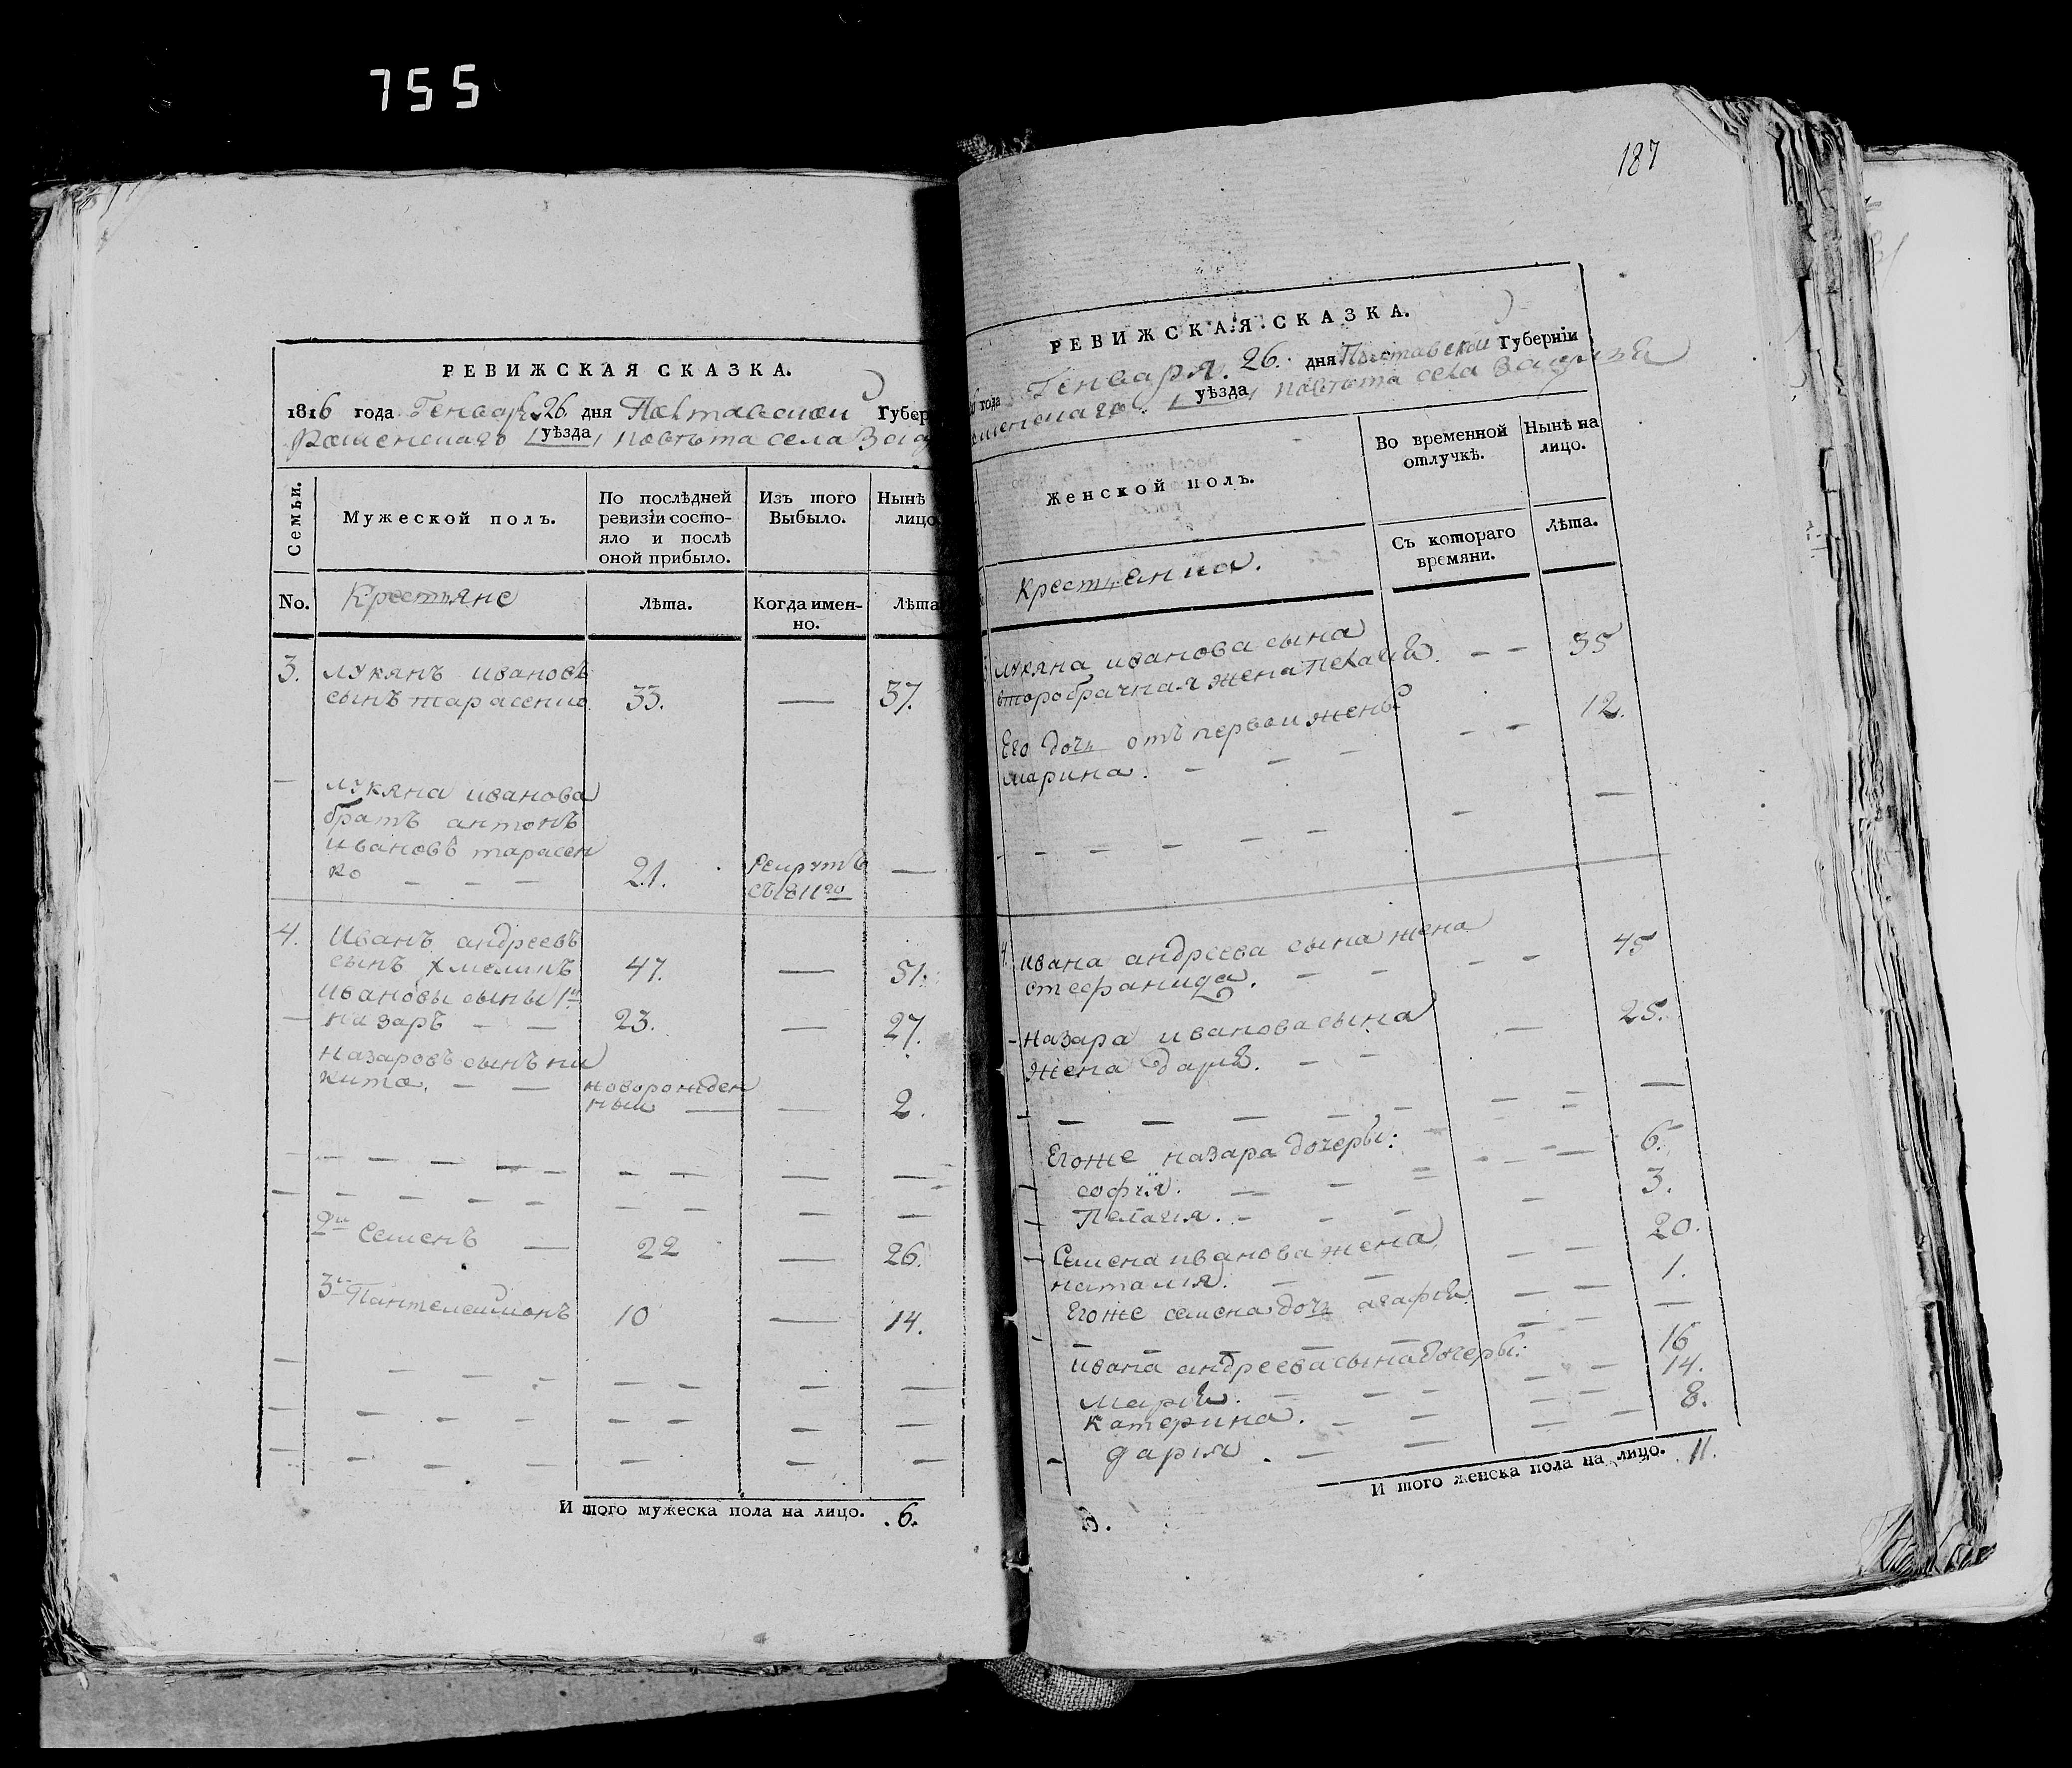 755
РЕВИЖСКАЯ СКАЗКА.
1816 года Генваря 26 дня Полтавской Губер
Роменского уѣзда повѣта села
Семьи.
Мужеской полъ.
По послѣдней
ревизіи состо-
яло и послѣ
оной прибыло.
Изъ того
Выбыло.
Нынѣ
лицо
No.
Крестьяне
Лѣта.
Когда имен-
но.
Лѣта
3. лукянъ ивановъ
сынъ тарасенко 33. — 37.
— лукяна иванова
братъ антонъ
ивановъ тарасен
ко — — — 21. рекрутъ —
съ 811го
4. Иванъ андреевъ
сынъ хмеликъ 47. — 51.
ивановы сыны 1й
— назаръ — — 23. — 27.
назаровъ сынъ ни
кита. — — новорожден
ный — — 2.
2й Семенъ — 22 — 26.
3й Пантелеймонъ 10 — 14.
И того мужеска пола на лицо. 6.
187
РЕВИЖСКАЯ СКАЗКА.
года Генваря 26. дня Полтавской Губерніи
уѣзда повѣта села
Женской полъ.
Во временной
отлучкѣ.
Нынѣ на
лицо.
Съ котораго
времяни.
Лѣта.
Крестьянка.
лукяна иванова сына
второбрачная жена пелагия. — — 35
Его дочь отъ первой жены
марина. — — — — — 12.
4. ивана андреева сына жена
стефанида. — — — — 45
— назара иванова сына
жена дария. — — — 25.
Егоже назара дочеры:
— софия. — — 6.
— Пелагия. — — — 3.
— Семена иванова жена
наталия. — — — — 20.
Егоже семена дочь агафия. — — 1.
ивана андреева сына дочеры:
мария. — — — 16
катерина. — — — 14.
— дария. — — — 8.
И того женска пола на лицо. 11.